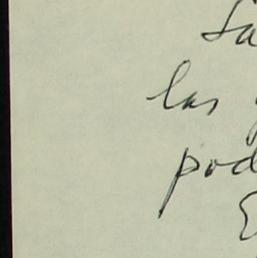 Sa
las
pod
E